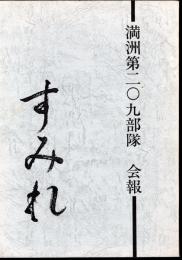 満洲第二〇九部隊　会報
すみれ